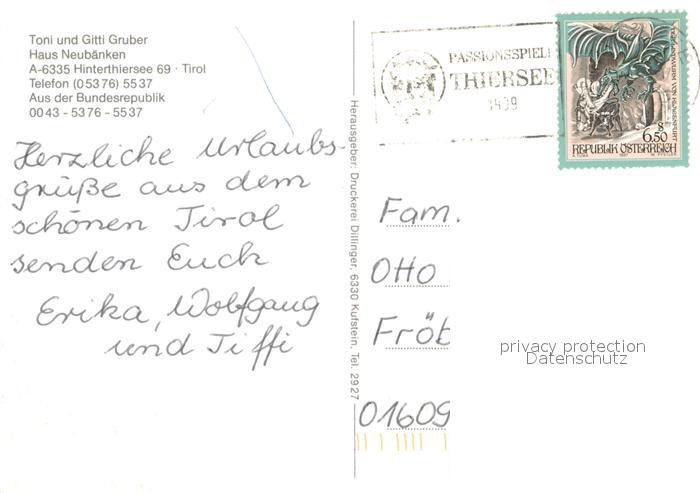 Toni und Gitti Gruber
Haus Neubänken
A-6335 Hinterthiersee 69 · Tirol
Telefon (05376) 5537
Aus der Bundesrepublik
0043 - 5376 - 5537
Herzliche Urlaubs-
grüße aus dem
schönen Tirol
senden Euch
Erika, Wolfgang
und Tiffi
Herausgeber: Druckerei Dillinger, 6330 Kufstein, Tel. 2927
PASSIONSSPIELE
THIERSEE
1999
LINDWURM VON KLAGENFURT
S
6.50
REPUBLIK ÖSTERREICH
1997
Fam.
Otto
Fröb
01609
privacy protection
Datenschutz